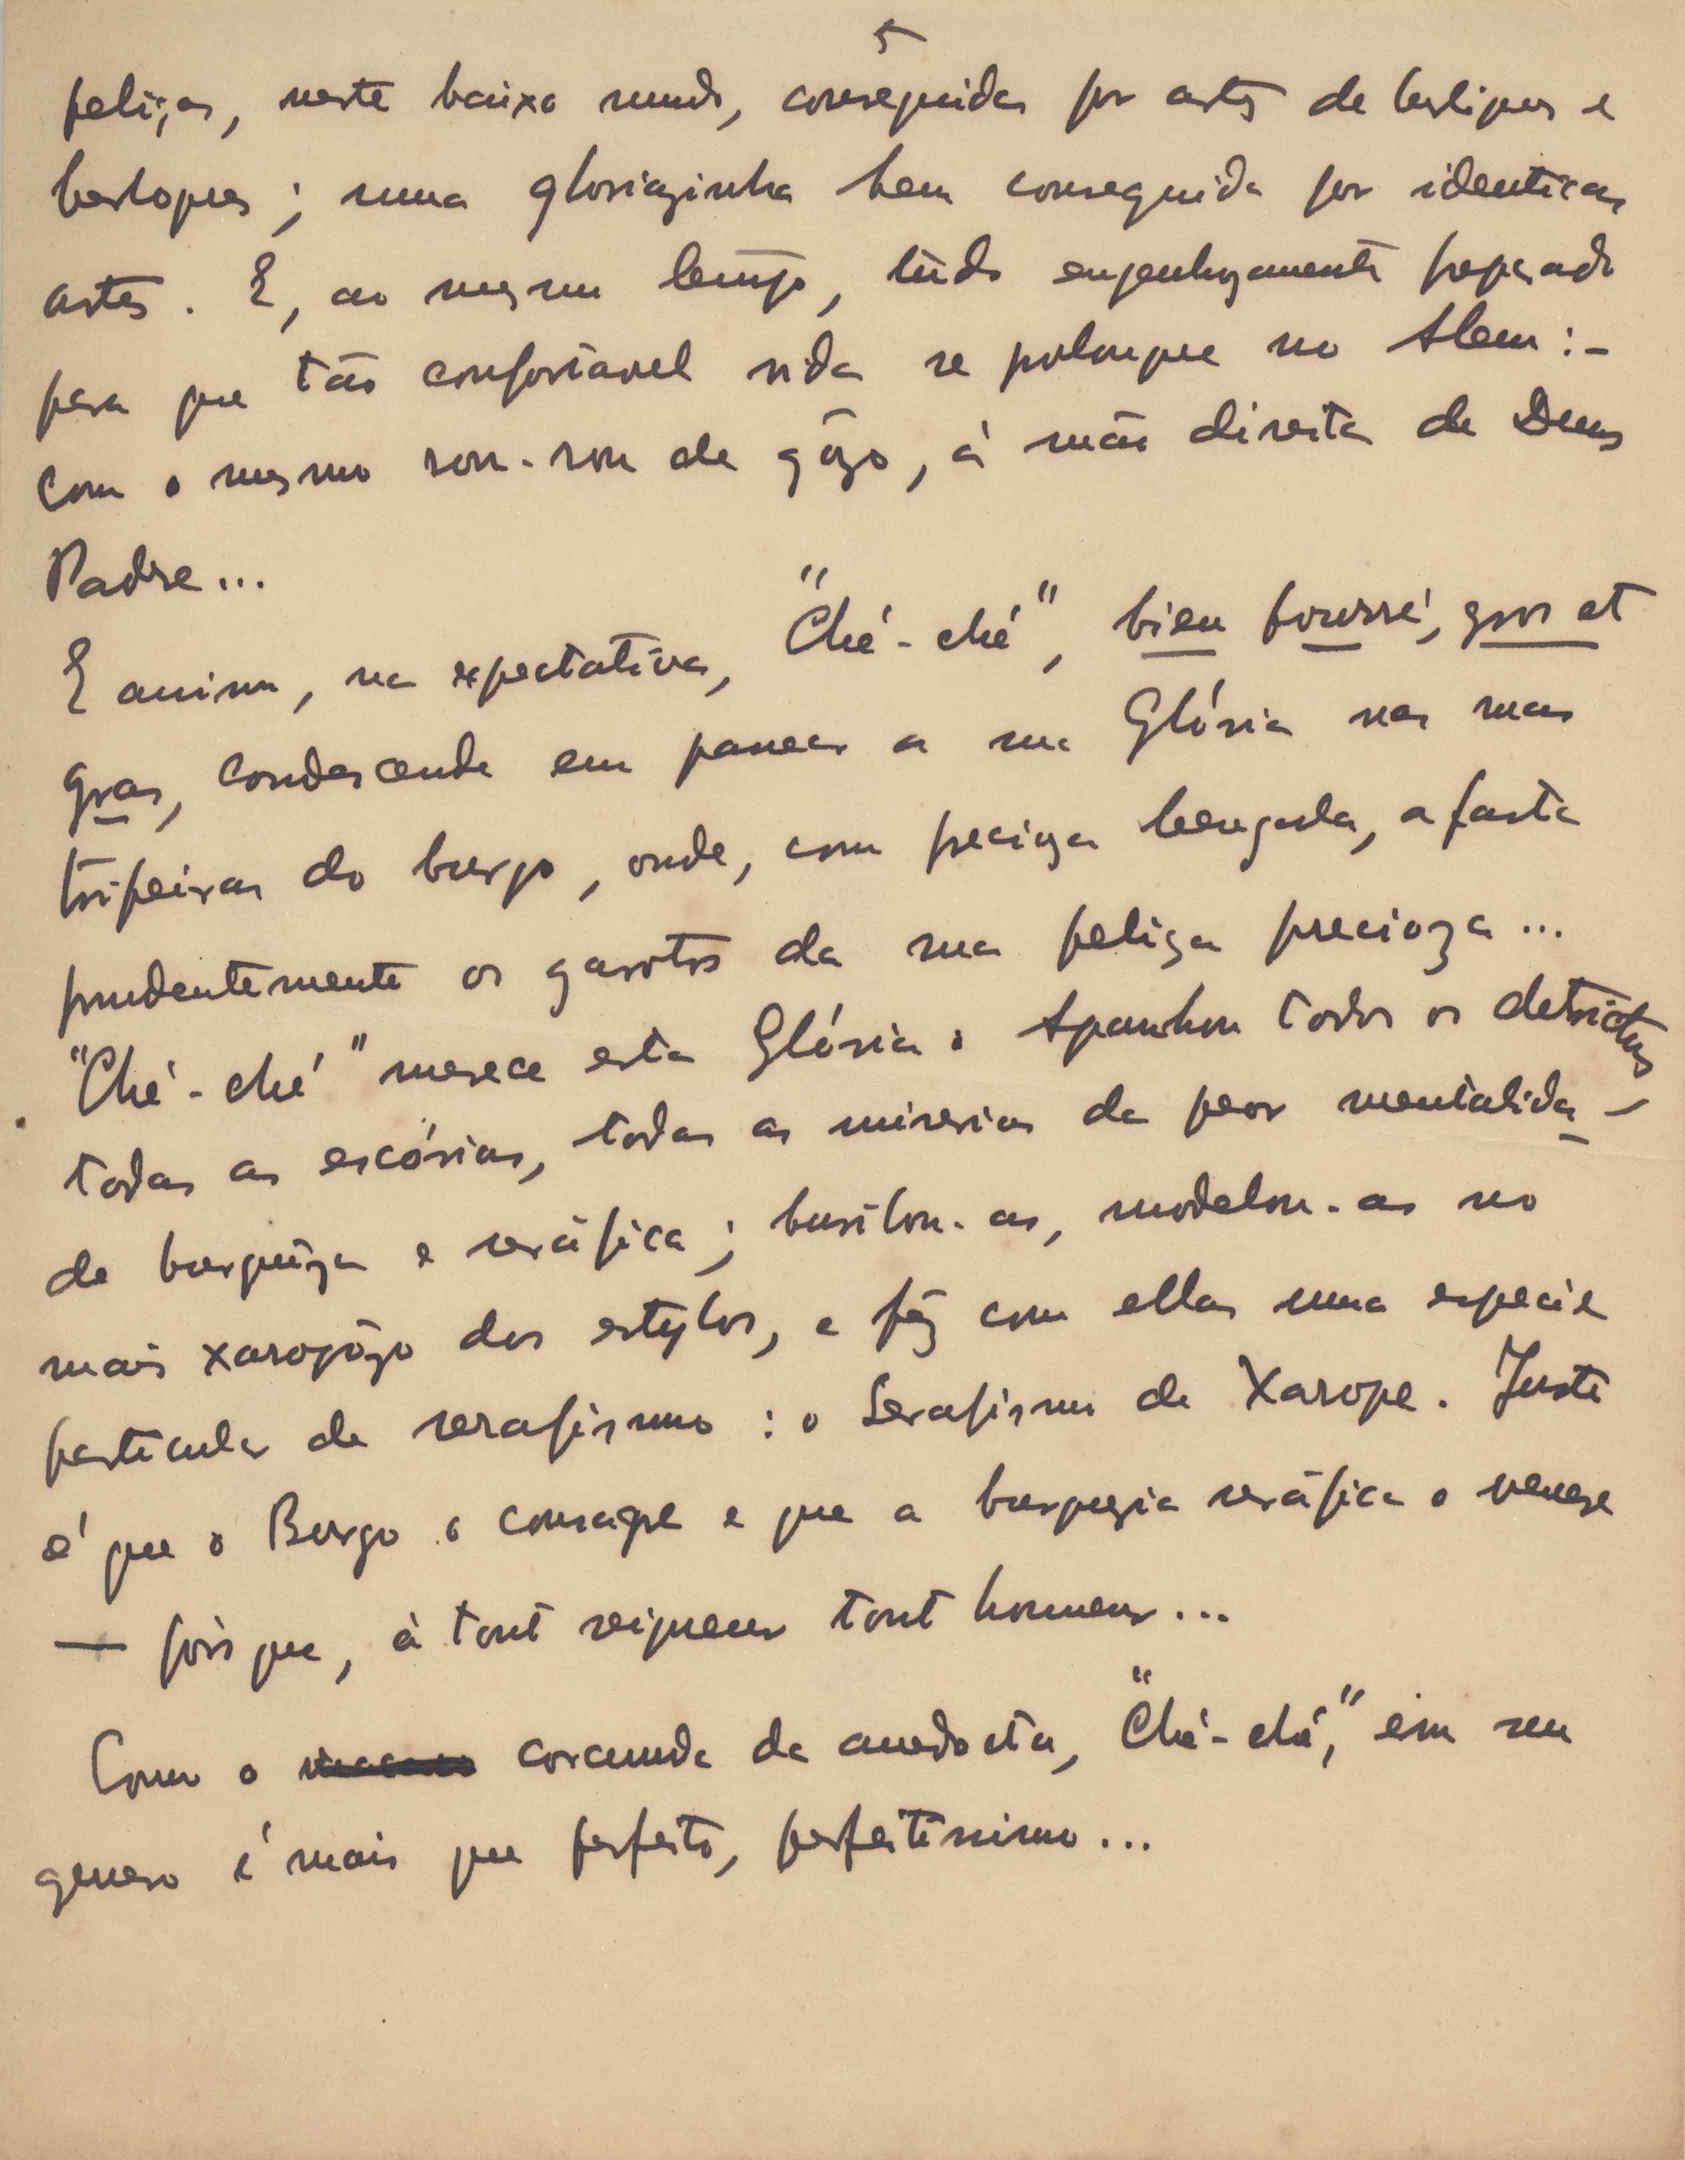 5
peliças, neste baixo mundo, conseguidas por artes de berliques e
berloques; uma gloriazinha bem conseguida por identicas
artes. E, ao mesmo tempo, tudo engenhozamente preparado
para que tão confortavel vida se prolongue no Alem:-
com o mesmo ron-ron de gôzo, á mão direita de Deus
Padre...
E assim, na expectativa, "Ché-ché", bien fourré, gros et
gras, condescende em passear a sua Glória nas ruas
tripeiras do burgo, onde, com preciosa bengala, afasta
prudentemente os garotos da sua peliça precioza...
"Ché-ché" merece esta Glória. Apanhou todos os detrictus
todas as escórias, todas as miserias da peor mentalida-
de burguêza e seráfica; burilou-as, modelou-as no
mais xaropôzo dos estylos, e fêz com ellas uma especie
particular de serafismo: o Serafismo de Xarope. Justo
é que o Burgo o consagre e que a burguezia seráfica o venere
— pois que, à tout seigneur tout honneur...
Como o corcunda da anedocta, "Ché-ché," em seu
genero é mais que perfeito, perfeitissimo...